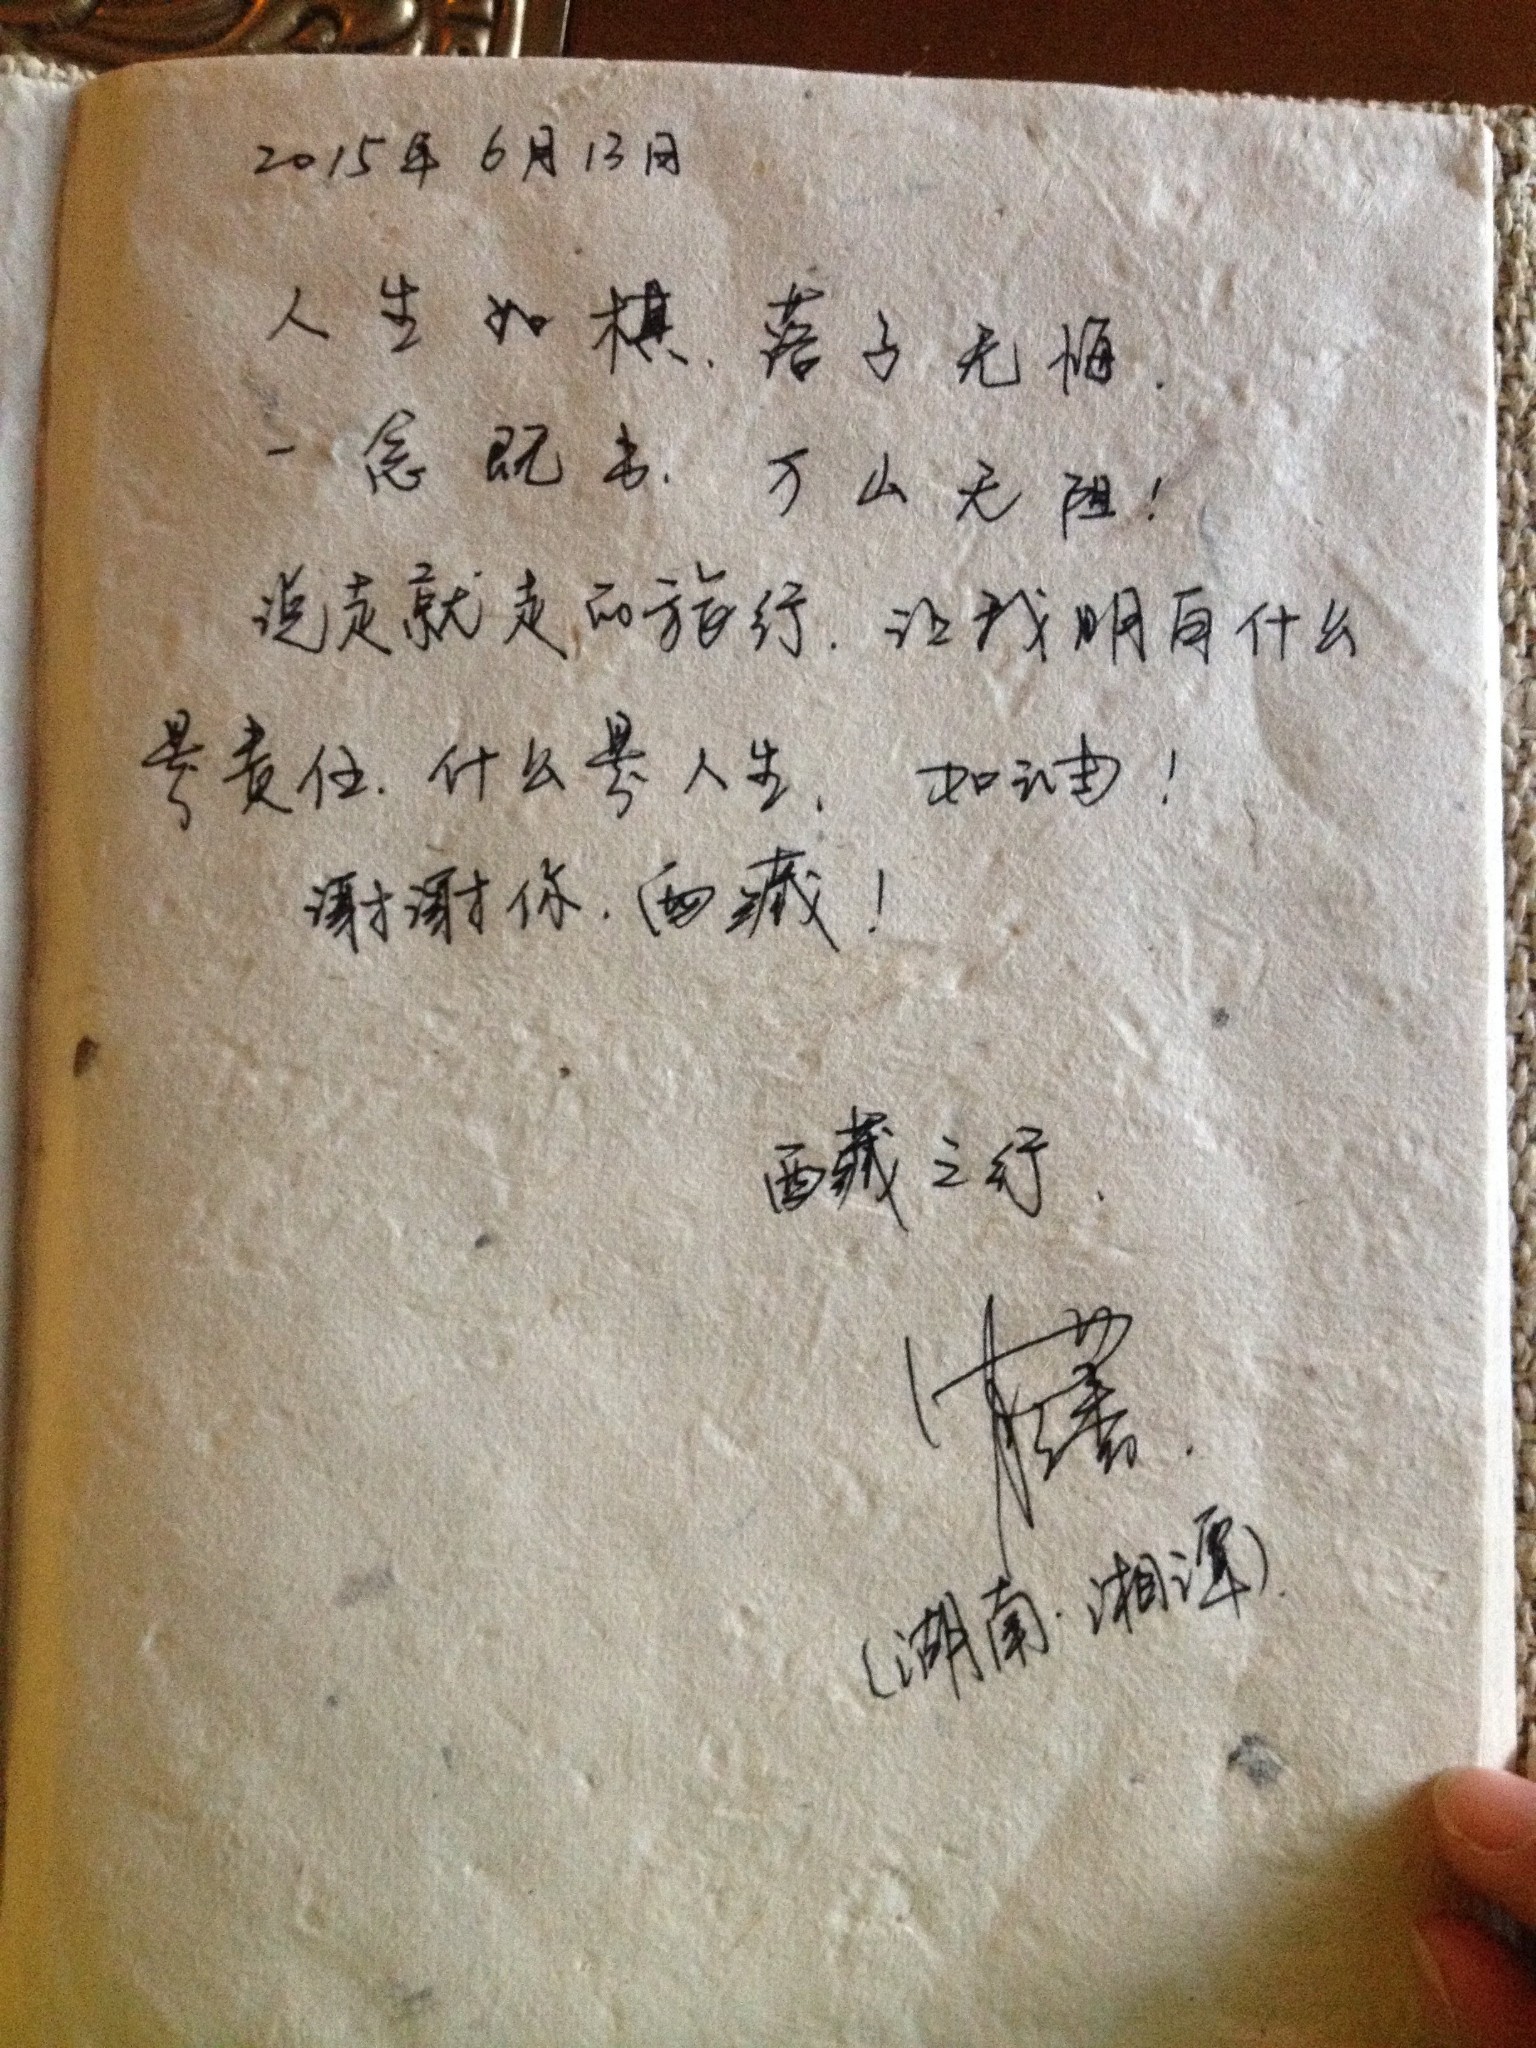 2015年6月13日
人生如棋.落子无悔.
一念既出.万山无阻!
说走就走的旅行.让我明白什么
是责任.什么是人生.加油!
谢谢你.西藏!
西藏之行.
(湖南·湘潭).